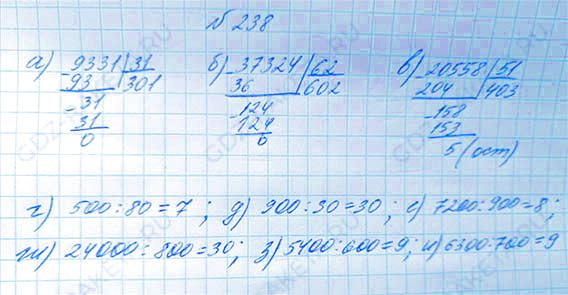 № 238
а) 9331 | 31 б) 37324 | 62 в) 20558 | 51
93 301 36 602 204 403
31 124 158
31 124 153
0 0 5 (ост)
г) 500 : 80 = 7 ; д) 900 : 30 = 30 ; е) 7200 : 900 = 8 ;
ж) 24000 : 800 = 30 ; з) 5400 : 600 = 9 ; и) 6300 : 700 = 9